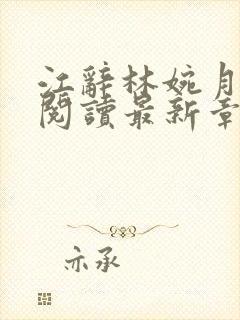 江辭林婉月
閱讀最新章
亦承